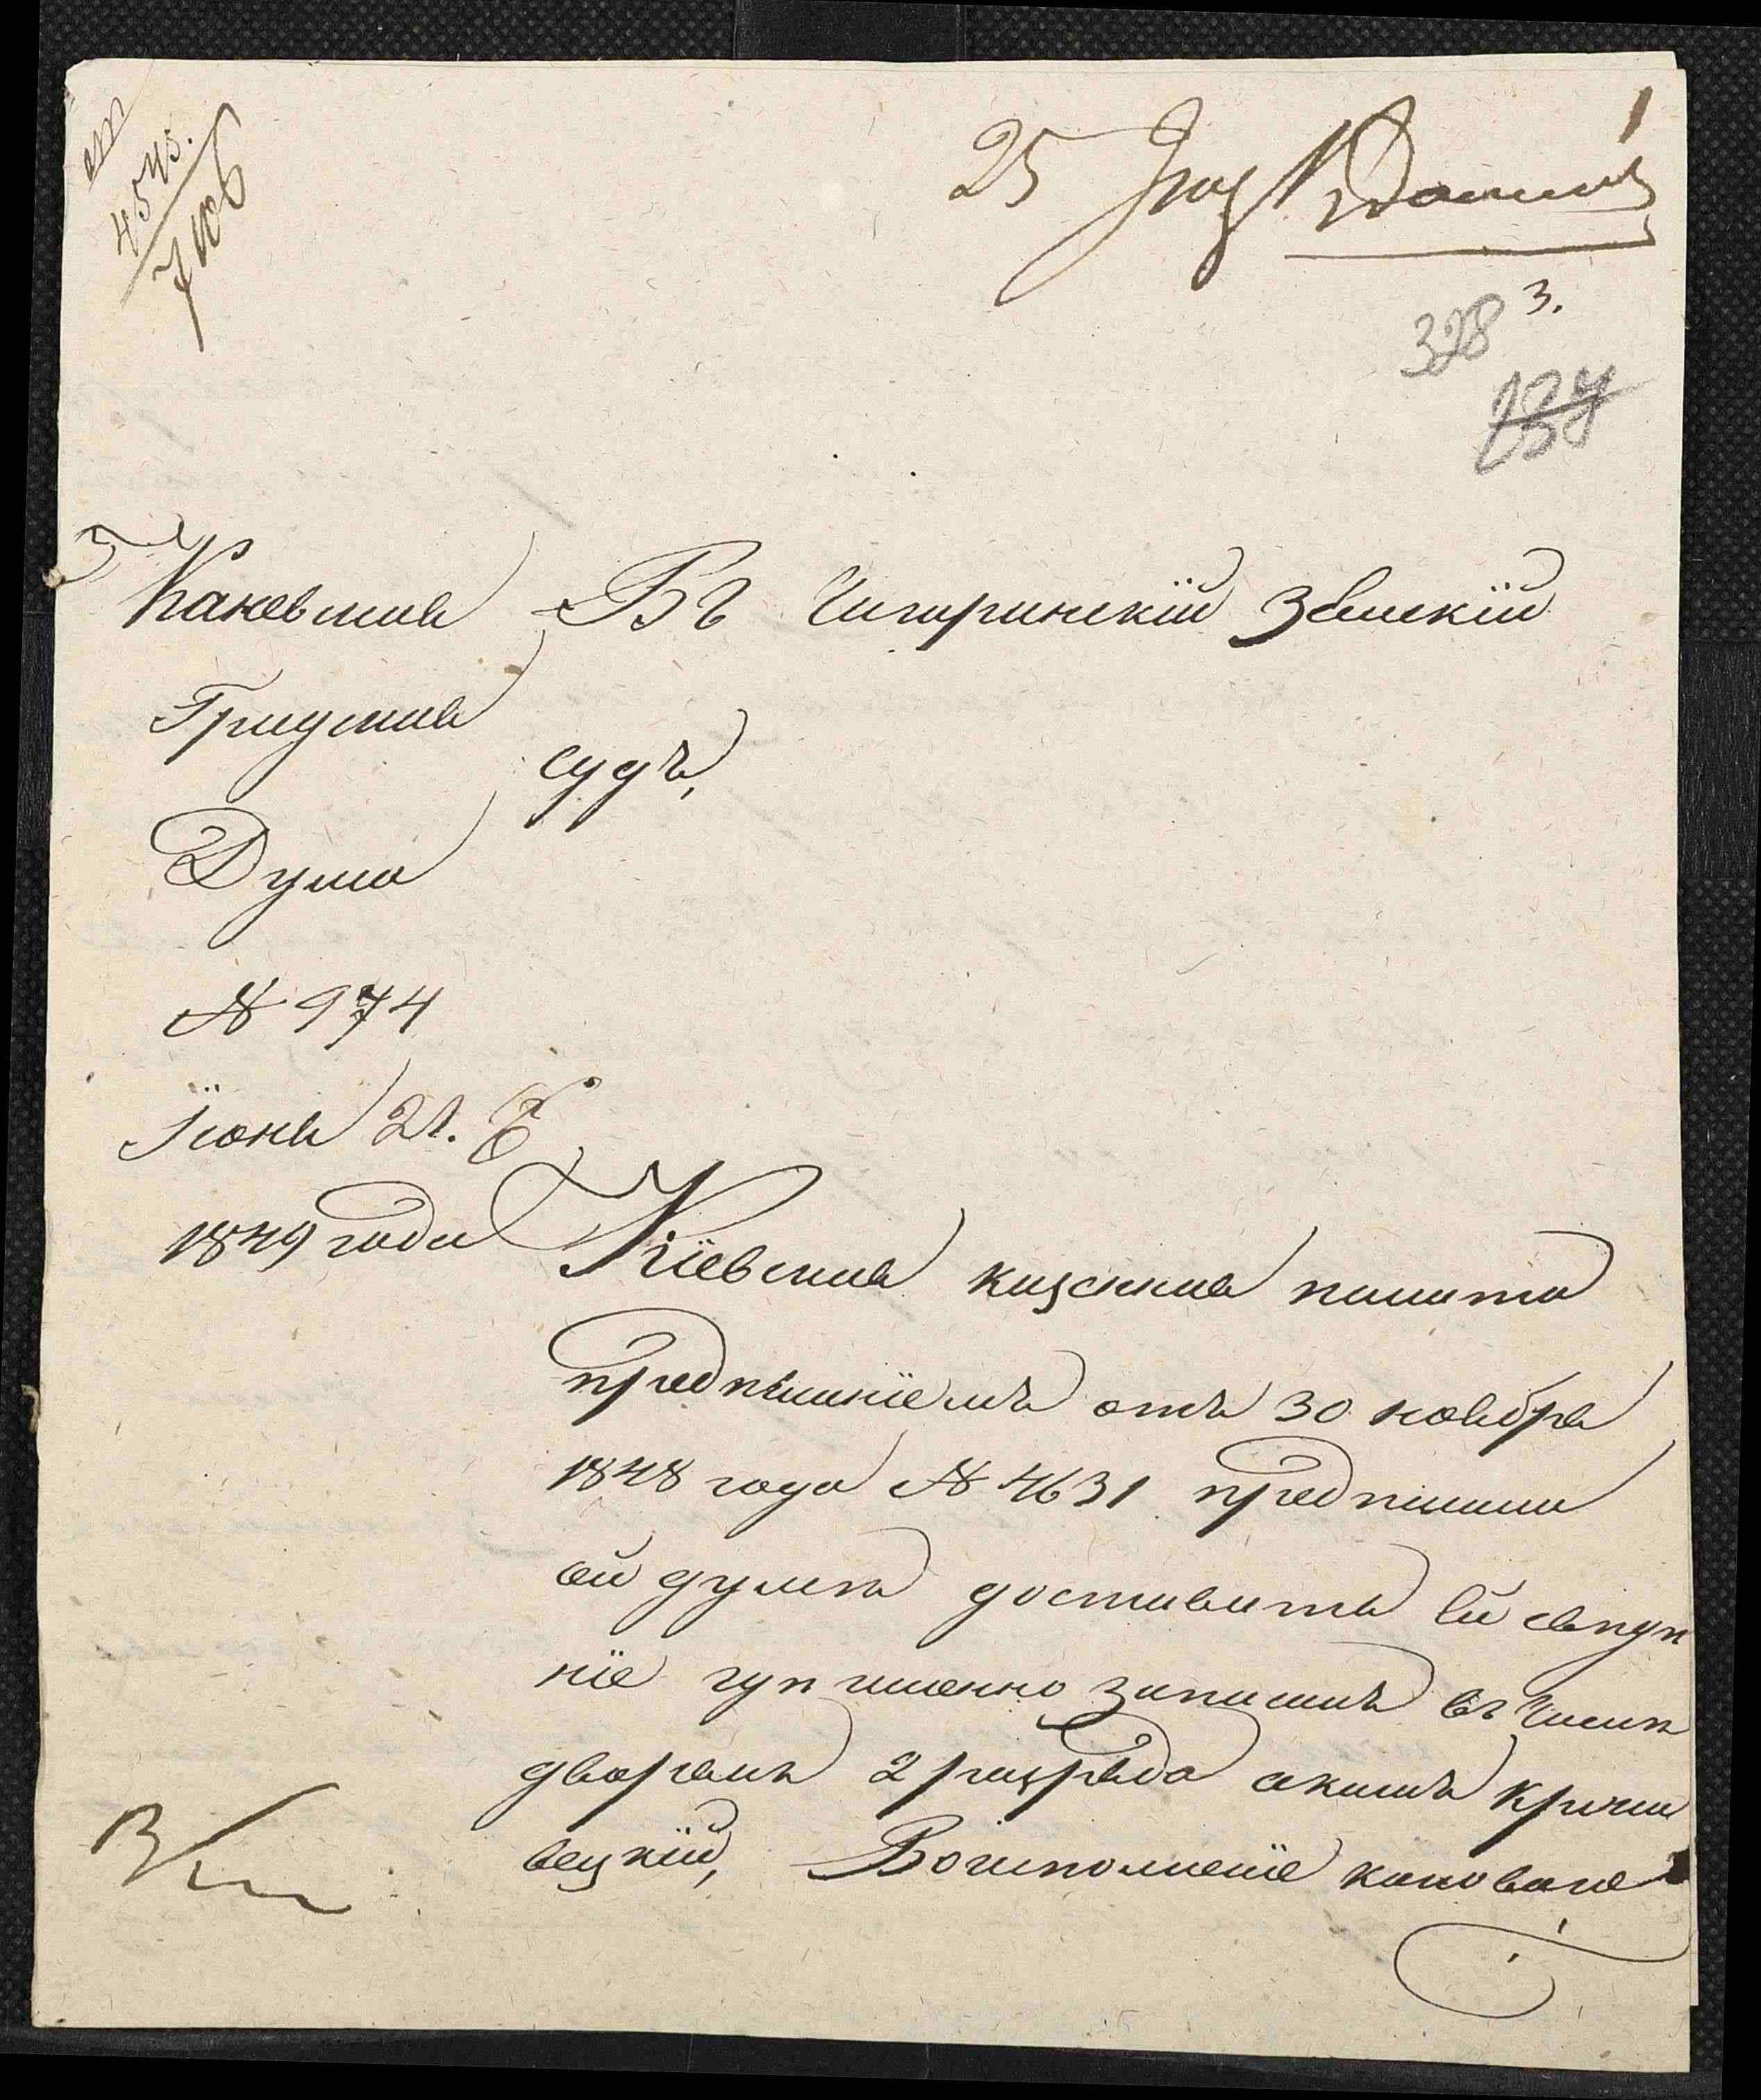 4543.
7106
25
1
3.
328
137
Каневская
Градская
Дума
№ 974
Іюня 21.
1849 года
Въ Чигиринскій Земскій
судъ,
Кіевская казенная палата
предписаніемъ отъ 30 ноября
1848 года № 4631 предписала
сей думѣ доставить ей свѣдѣ
ніе гдѣ именно записанъ въ числѣ
дворянъ 2 разряда
вецкій, Воисполненіе каковаго